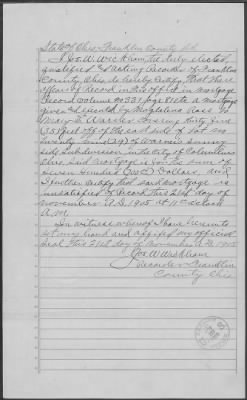 State of Ohio, Franklin County SS.
I, Jos. W. Wickham, the duly elected,
qualified & Acting Recorder of Franklin
County, Ohio, do hereby Certify, that there
of Record in this office in mortgage
Record volume page a mortgage
executed by Magdalena
Mary E. Warner covering thirty five
(35) feet off of the east side of Lot No.
Twenty nine (29) of Warners
Subdivision in the City of Columbus
Ohio. Said mortgage is for the sum of
Seven Hundred (700) Dollars, and
I further certify that said mortgage is
unsatisfied of Record this 21st day of
November A.D. 1905 at 11 o'clock
A.M.
In witness whereof I have hereunto
set my hand and affixed my official
seal this 21st day of November A.D. 1905
Jos. W. Wickham
Recorder Franklin
County Ohio.